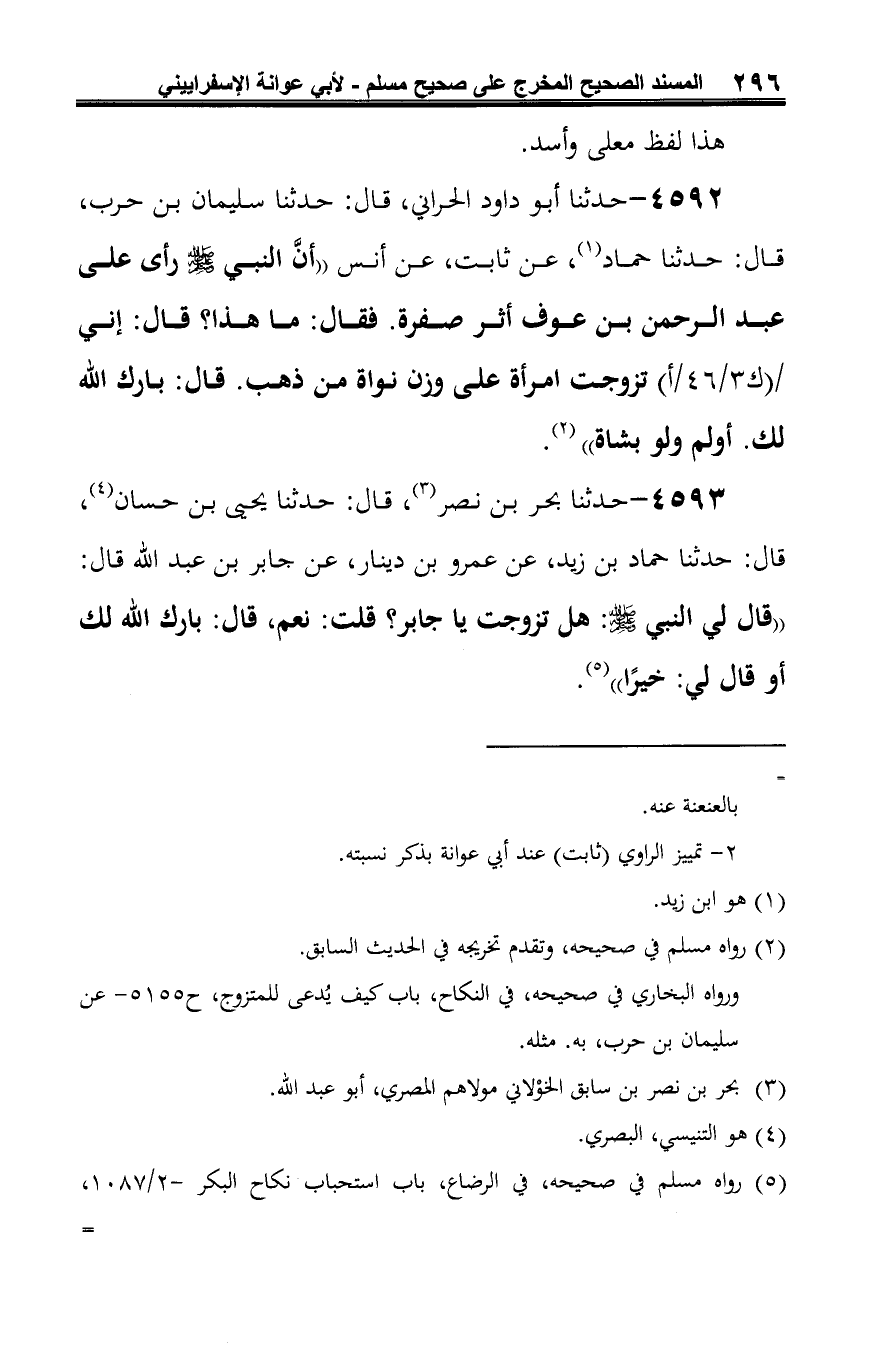 ٢٩٦ المسند الصحيح المخرج على صحيح مسلم - لأبي عوانة الإسفراييني
هذا لفظ معلى وأسد.
٤٥٩٢-حدثنا أبو داود الحراني، قال: حدثنا سليمان بن حرب،
قال: حدثنا حماد(١)، عن ثابت، عن أنس ((أنَّ النبي ﷺ رأى على
عبد الرحمن بن عوف أثر صفرة. فقال: ما هذا؟ قال: إني
/(ك٤٦/٣/أ) تزوجت امرأة على وزن نواة من ذهب. قال: بارك الله
لك. أولم ولو بشاة))(٢).
٤٥٩٣-حدثنا بحر بن نصر(٣)، قال: حدثنا يحيى بن حسان(٤)،
قال: حدثنا حماد بن زيد، عن عمرو بن دينار، عن جابر بن عبد الله قال:
((قال لي النبي ﷺ: هل تزوجت يا جابر؟ قلت: نعم، قال: بارك الله لك
أو قال لي: خيرًا))(٥).
=
بالعنعنة عنه.
٢- تمييز الراوي (ثابت) عند أبي عوانة بذكر نسبته.
(١) هو ابن زيد.
(٢) رواه مسلم في صحيحه، وتقدم تخريجه في الحديث السابق.
ورواه البخاري في صحيحه، في النكاح، باب كيف يُدعى للمتزوج، ح٥١٥٥- عن
سليمان بن حرب، به. مثله.
(٣) بحر بن نصر بن سابق الخوْلاني مولاهم المصري، أبو عبد الله.
(٤) هو التنيسي، البصري.
(٥) رواه مسلم في صحيحه، في الرضاع، باب استحباب نكاح البكر -١٠٨٧/٢،
=